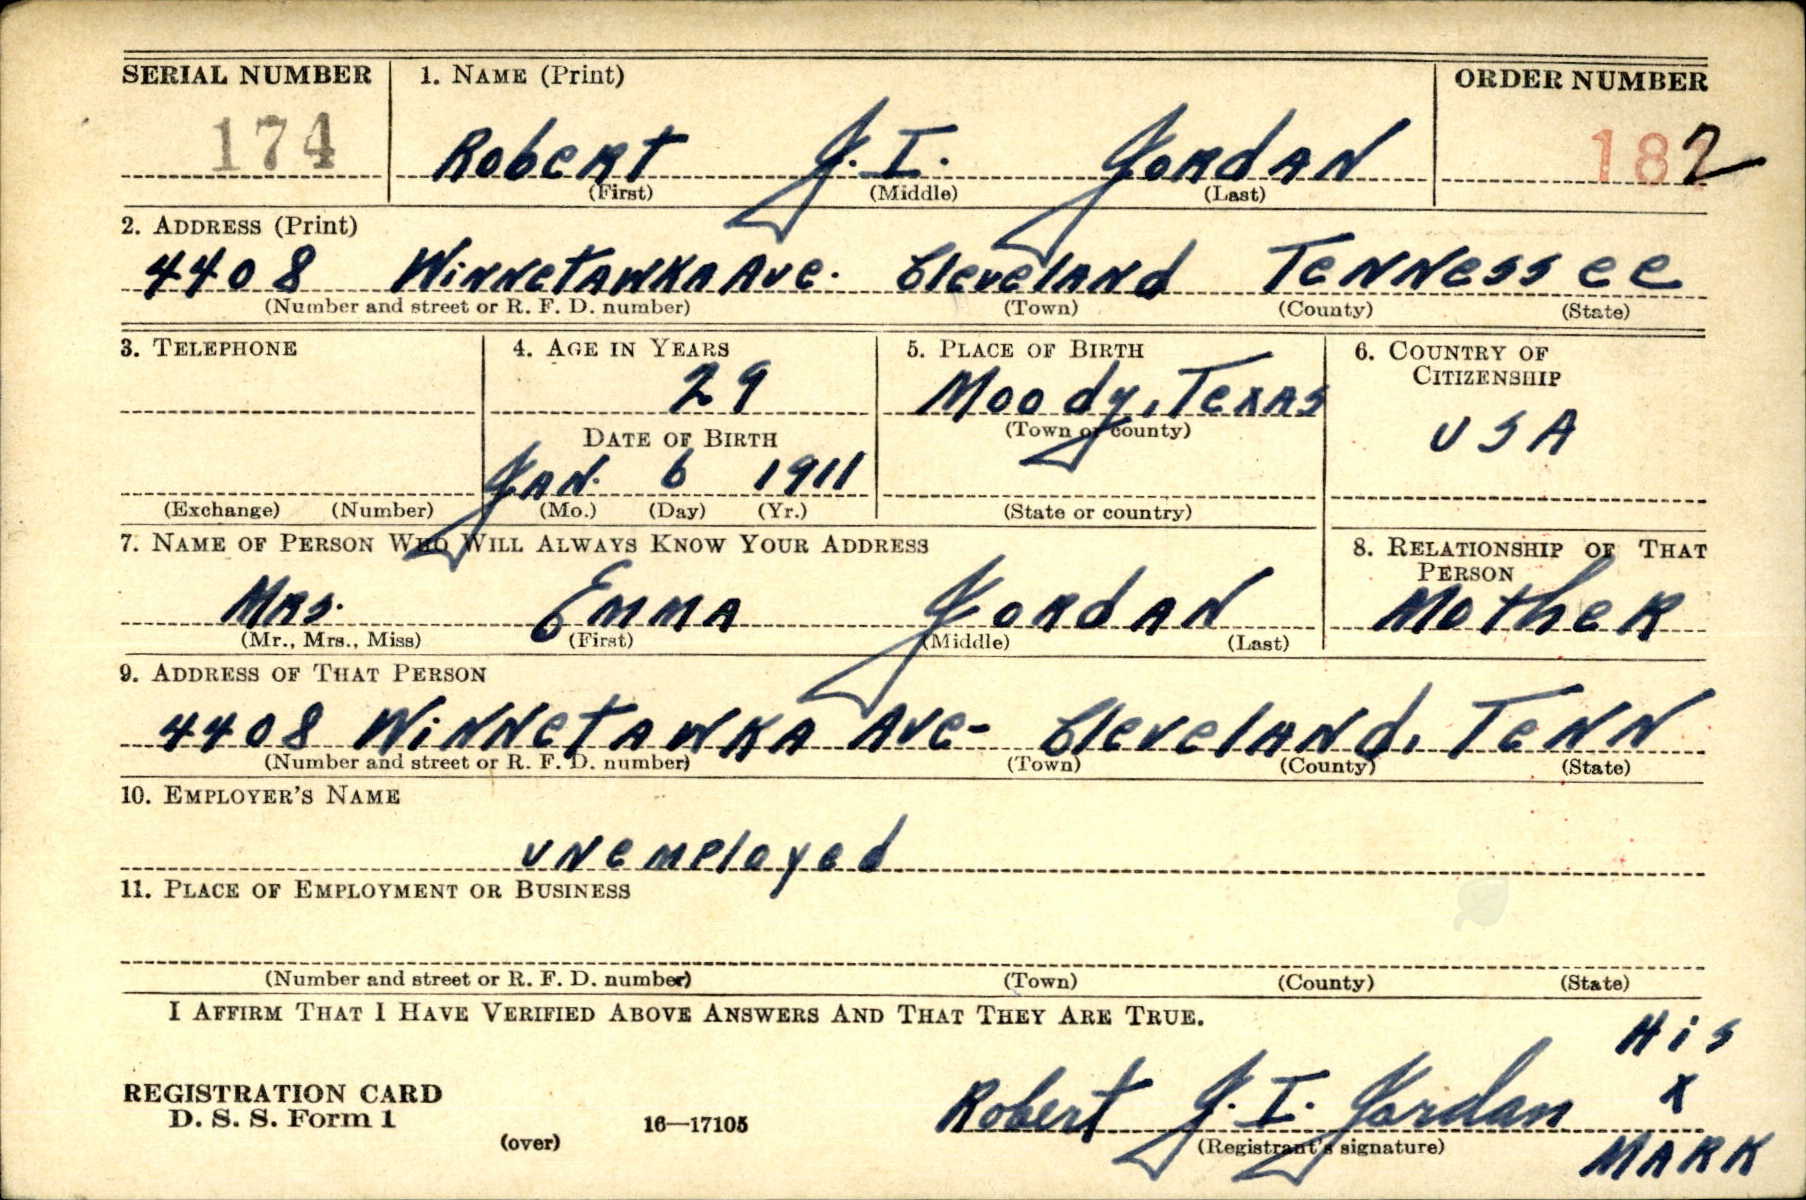 SERIAL NUMBER 1. NAME (Print) ORDER NUMBER
174 Robert J. I. Jordan 182
(First) (Middle) (Last)
2. ADDRESS (Print)
4408 Winnetawka Ave. Cleveland Tennessee
(Number and street or R. F. D. number) (Town) (County) (State)
3. TELEPHONE 4. AGE IN YEARS 5. PLACE OF BIRTH 6. COUNTRY OF CITIZENSHIP
29 Moody, Texas USA
(Town or county)
DATE OF BIRTH
Jan. 6 1911
(Exchange) (Number) (Mo.) (Day) (Yr.) (State or country)
7. NAME OF PERSON WHO WILL ALWAYS KNOW YOUR ADDRESS 8. RELATIONSHIP OF THAT PERSON
Mrs. Emma Jordan Mother
(Mr., Mrs., Miss) (First) (Middle) (Last)
9. ADDRESS OF THAT PERSON
4408 Winnetawka Ave- Cleveland, Tenn
(Number and street or R. F. D. number) (Town) (County) (State)
10. EMPLOYER'S NAME
unemployed
11. PLACE OF EMPLOYMENT OR BUSINESS
(Number and street or R. F. D. number) (Town) (County) (State)
I AFFIRM THAT I HAVE VERIFIED ABOVE ANSWERS AND THAT THEY ARE TRUE.
His
REGISTRATION CARD Robert J. I. Jordan X
D. S. S. Form 1 16—17105 (Registrant's signature) Mark
(over)